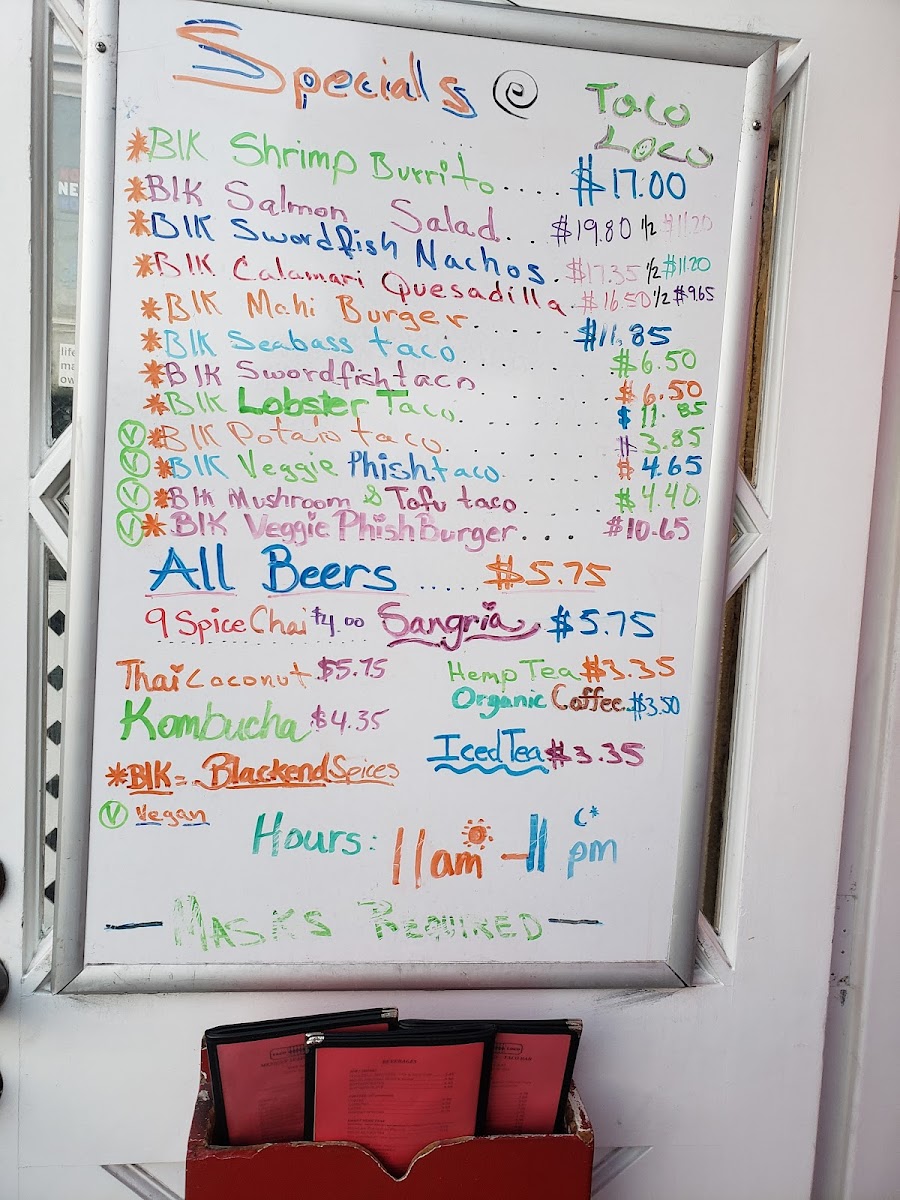 Specials @ Taco Loco
*Blk Shrimp Burrito..... $17.00
*Blk Salmon Salad... $19.80 1/2 $11.20
*Blk Swordfish Nachos. $17.35 1/2 $11.20
*Blk Calamari Quesadilla. $16.50 1/2 $9.65
*Blk Mahi Burger...... $11.85
*Blk Seabass taco....... $6.50
*Blk Swordfish taco...... $6.50
*Blk Lobster Taco....... $11.85
V *Blk Potato taco....... $3.85
V *Blk Veggie Phish taco..... $4.65
V *Blk Mushroom & Tofu taco..... $4.40
V *Blk Veggie Phish Burger.... $10.65
All Beers ..... $5.75
9 Spice Chai $4.00 Sangria $5.75
Thai Coconut $5.75 Hemp Tea $3.35
Organic Coffee $3.50
Kombucha $4.35
Iced Tea $3.35
*Blk = Blackend Spices
V Vegan
Hours: 11am - 11 pm
— Masks Required —